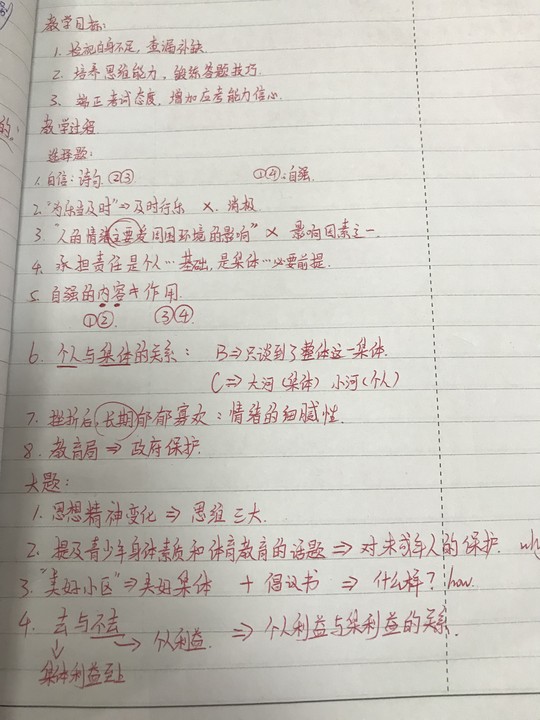 教学目标:
1. 检视自身不足, 查漏补缺.
2. 培养思维能力, 锻炼答题技巧.
3. 端正考试态度, 增加应考能力信心.
的:
教学过程
选择题:
1. 自信: 诗句. ②③ ①④: 自强.
2. "为乐当及时" ⇒ 及时行乐 ×. 消极.
3. "人的情绪主要受周围环境的影响" × 影响因素之一.
4. 承担责任是个人…基础, 是集体…必要前提.
5. 自强的内容 作用.
①② ③④
6. 个人与集体的关系: B ⇒ 只谈到了整体这一集体.
C ⇒ 大河(集体) 小河(个人)
7. 挫折后, 长期郁郁寡欢: 情绪的细腻性.
8. 教育局 ⇒ 政府保护.
大题:
1. 思想精神变化 ⇒ 思维 三大.
2. 提及青少年身体素质和体育教育的话题 ⇒ 对未成年人的保护. why
3. "美好小区" ⇒ 美好集体 + 倡议书 ⇒ 什么样? how.
4. 去与不去 → 个人利益. ⇒ 个人利益与集利益的关系.
↓
集体利益至上